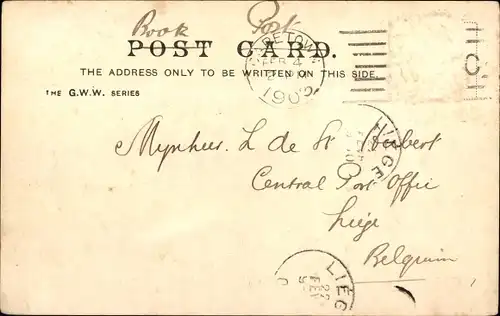 Book Post
POST CARD.
THE ADDRESS ONLY TO BE WRITTEN ON THIS SIDE.
THE G.W.W. SERIES
FEB 4
190
C
Mynheer L de St
Central Post Office
Liège
Belgium
LIEGE
LIEG